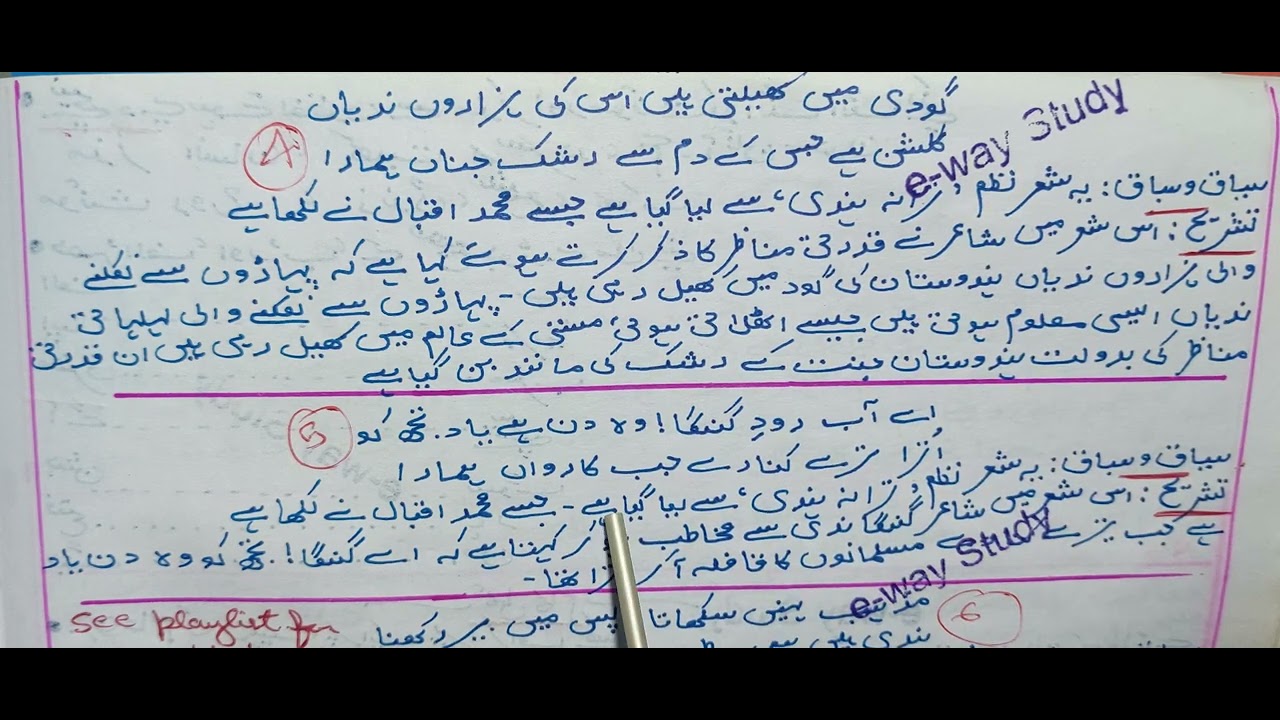 گودی میں کھیلتی ہیں اس کی ہزاروں ندیاں
گلشن ہے جس کے دم سے رشک جناں ہمارا
A
e-way Study
سیاق و سباق: یہ شعر نظم 'ترانہ ہندی' سے لیا گیا ہے جسے محمد اقبال نے لکھا ہے
تشریح: اس شعر میں شاعر نے قدرتی مناظر کا ذکر کرتے ہوئے کہا ہے کہ پہاڑوں سے نکلنے
والی ہزاروں ندیاں ہندوستان کی گود میں کھیل رہی ہیں - پہاڑوں سے نکلنے والی لہلہاتی
ندیاں ایسی معلوم ہوتی ہیں جیسے اٹھلاتی ہوئی، مستی کے عالم میں کھیل رہی ہیں ان قدرتی
مناظر کی بدولت ہندوستان جنت کے رشک کی مانند بن گیا ہے
اے آب رودِ گنگا! وہ دن ہے یاد تجھ کو
5
اُترا ترے کنارے جب کارواں ہمارا
سیاق و سباق: یہ شعر نظم 'ترانہ ہندی' سے لیا گیا ہے - جسے محمد اقبال نے لکھا ہے
تشریح: اس شعر میں شاعر گنگا ندی سے مخاطب کہتا ہے کہ اے گنگا! تجھ کو وہ دن یاد
ہے جب تیرے مسلمانوں کا قافلہ آ کر تھا -
e-way Study
مذہب نہیں سکھاتا آپس میں بیر رکھنا
6
See playlist for
ہندی ہیں